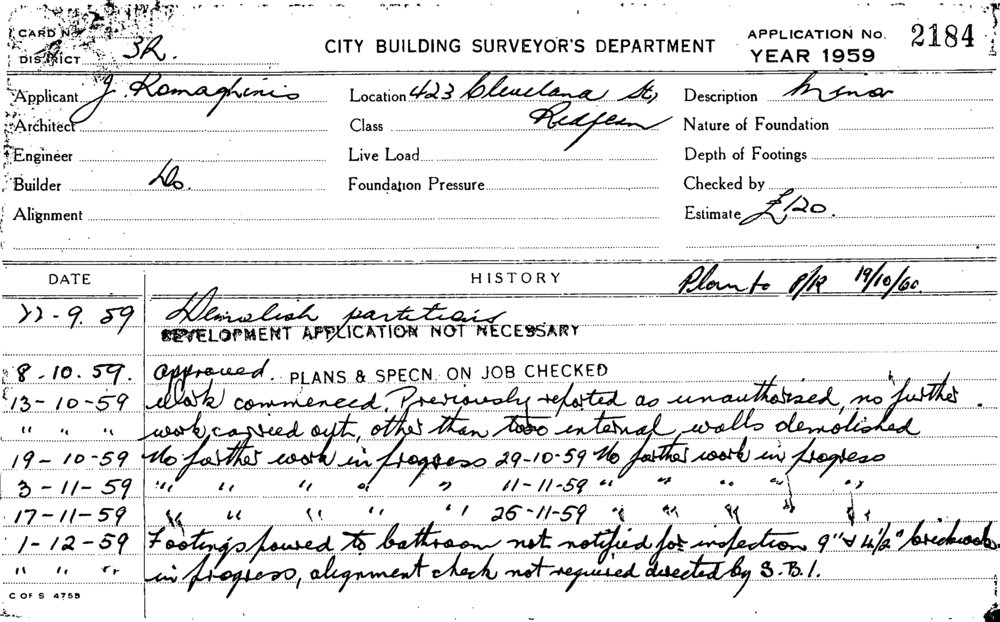 CARD No.
DISTRICT 3R.
CITY BUILDING SURVEYOR'S DEPARTMENT
APPLICATION No. 2184
YEAR 1959
Applicant J. Romaghinis Location 423 Cleveland St, Redfern Description Minor
Architect Class Nature of Foundation
Engineer Live Load Depth of Footings
Builder Do. Foundation Pressure Checked by
Alignment Estimate £120.
DATE HISTORY Plan to P/R 19/10/60.
22-9.59 Demolish partitions
DEVELOPMENT APPLICATION NOT NECESSARY
8-10.59. Approved. PLANS & SPECN. ON JOB CHECKED
13-10-59 Work commenced. Previously reported as unauthorised, no further
" " " work carried out, other than two internal walls demolished.
19-10-59 No further work in progress 29-10-59 No further work in progress
3-11-59 " " " " " 11-11-59 " " " " "
17-11-59 " " " " " 26-11-59 " " " " "
1-12-59 Footings poured to bathroom not notified for inspection 9" & 4½" brickwork
" " " in progress, alignment check not required directed by S.B.I.
C OF S 4758